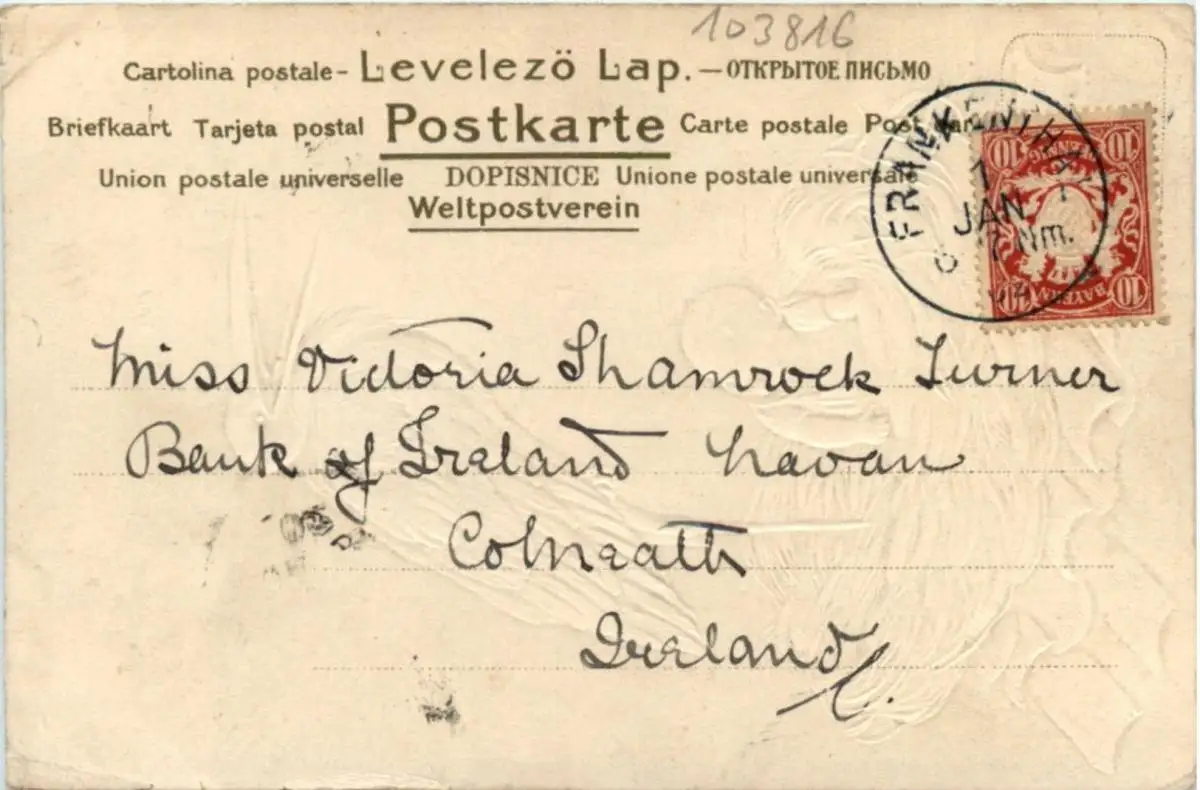 103816
Cartolina postale - Levelezö Lap. — ОТКРЫТОЕ ПИСЬМО
Briefkaart Tarjeta postal Postkarte Carte postale Post
Union postale universelle DOPISNICE Unione postale universale
Weltpostverein
FRANKENTHAL
1
JAN.
7 Nm.
10 10
BAYERN
10 10
Miss Victoria Shamrock Turner
Bank of Ireland Navan
Co Meath
Ireland